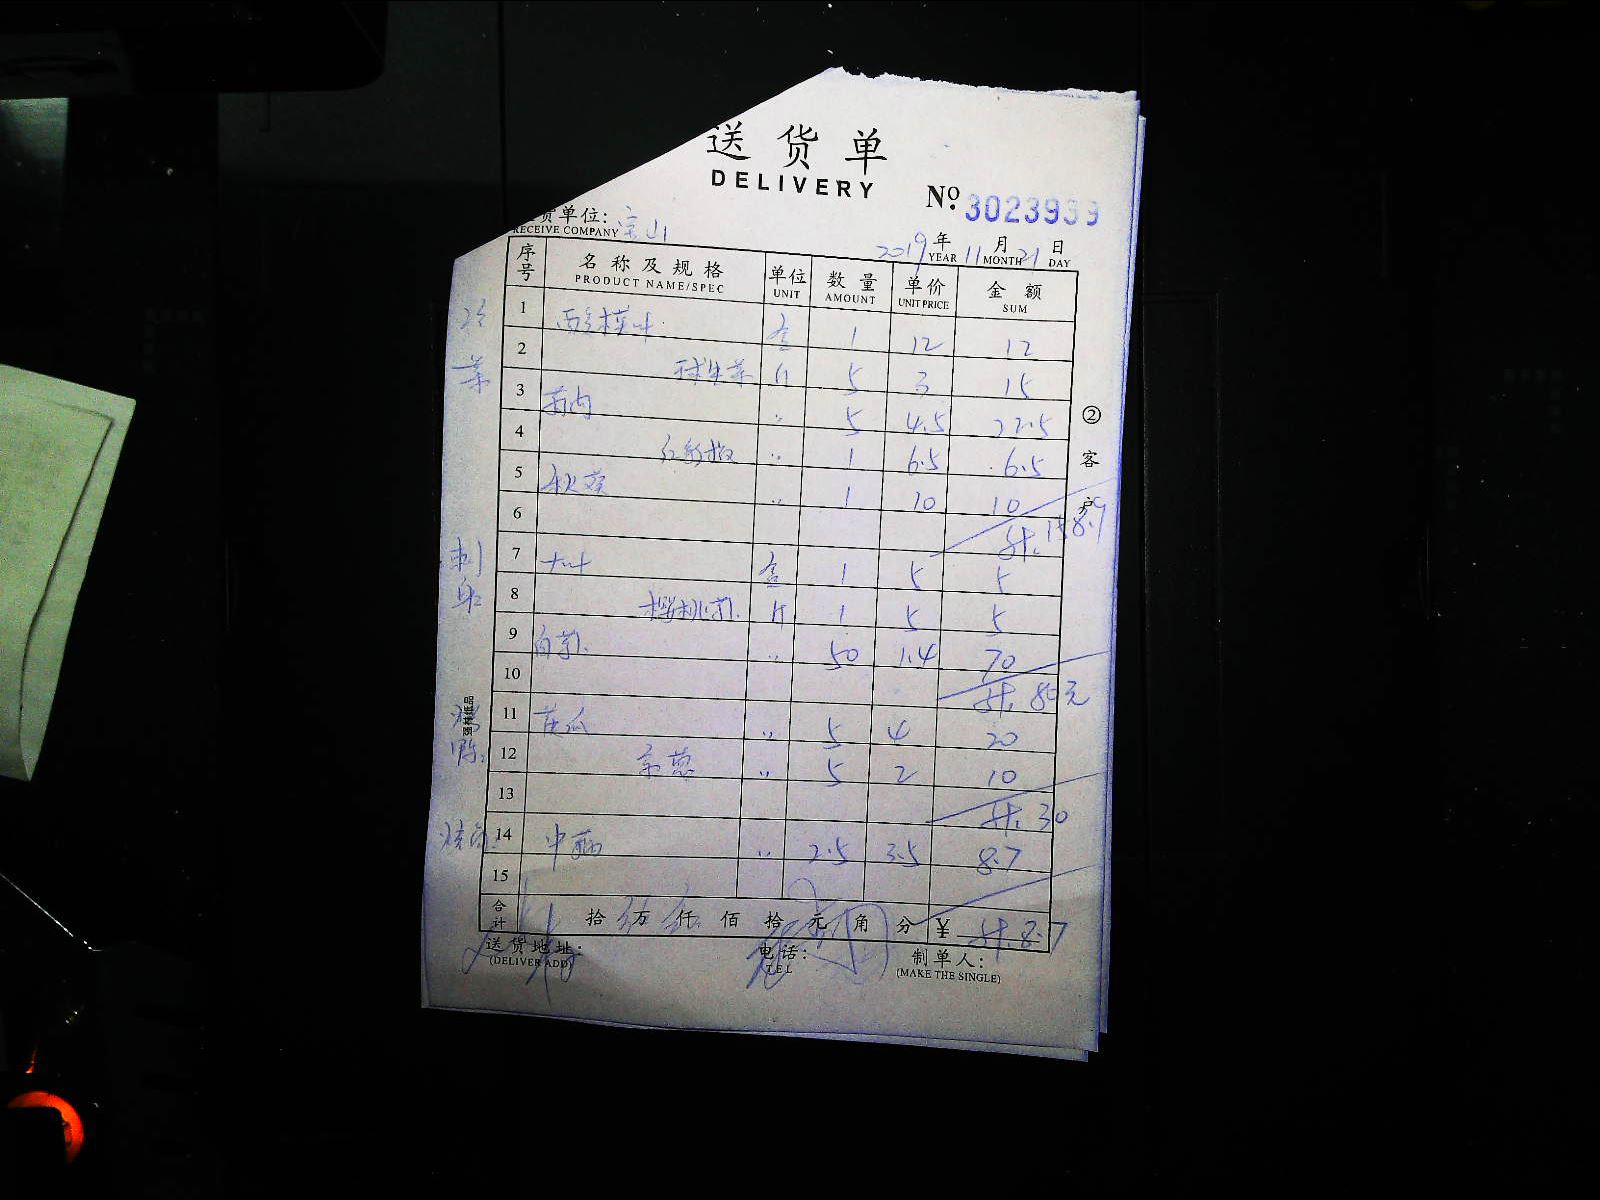 送货单
DELIVERY
No. 3023939
货单位: 宝山
RECEIVE COMPANY
2019 年 YEAR 11 月 MONTH 21 日 DAY
序号 名称及规格 PRODUCT NAME/SPEC 单位 UNIT 数量 AMOUNT 单价 UNIT PRICE 金额 SUM
冷菜
1 盒 1 12 12
2 球生菜 斤 5 3 15
3 〃 5 4.5 22.5
4 〃 1 6.5 6.5
5 秋葵 〃 1 10 10
6 计. 158.7
刺身
7 大叶 盒 1 5 5
8 樱桃萝卜. 斤 1 5 5
9 白萝卜. 〃 50 1.4 70
10 计. 80元
11 黄瓜 〃 5 4 20
12 京葱 〃 5 2 10
13 计. 30
14 中芹 〃 2.5 3.5 8.7
15
合计 拾 万 仟 佰 拾 元 角 分 ¥ 计. 8.7
送货地址: (DELIVER ADD)
电话: TEL
制单人: (MAKE THE SINGLE)
②客户
强林纸品